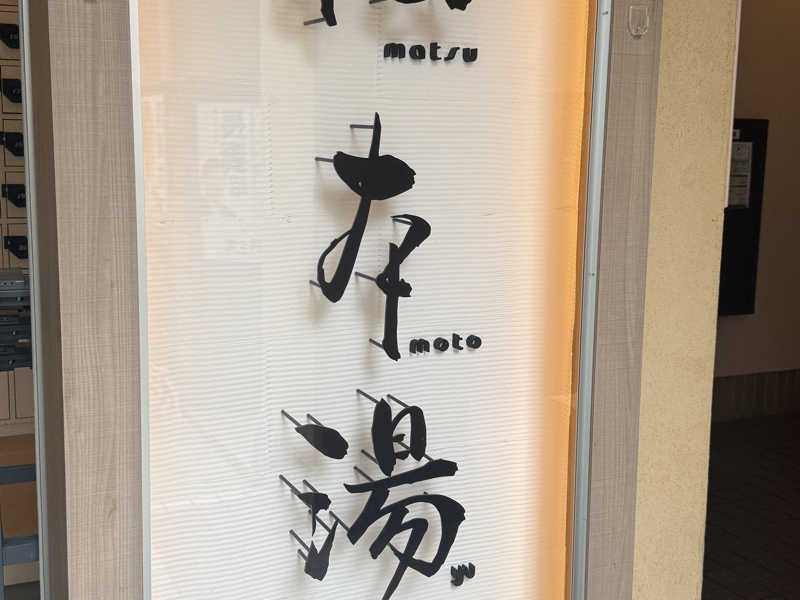 matsu
本
moto
湯
yu